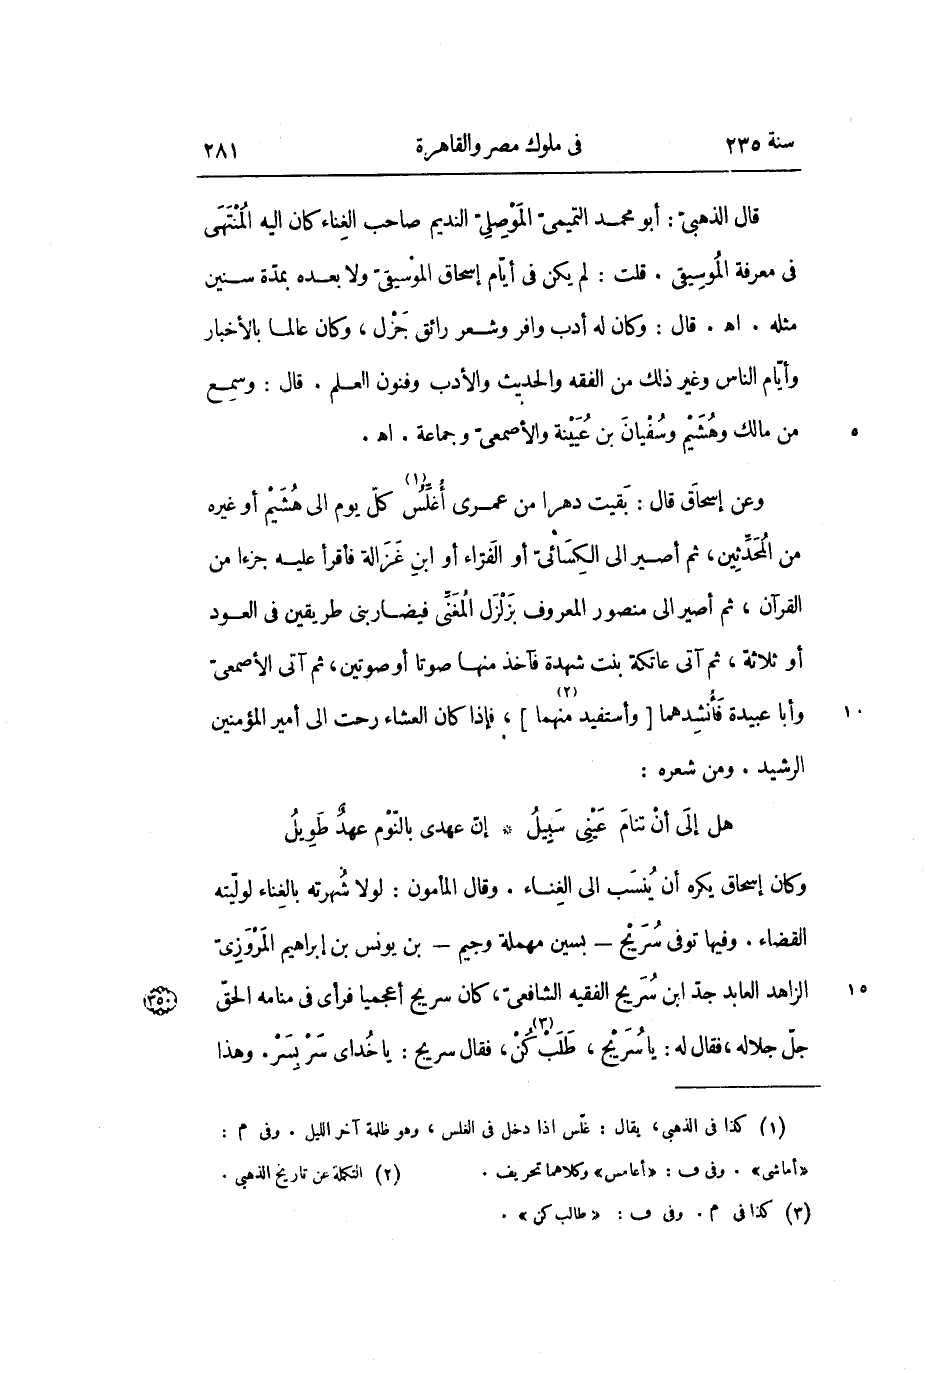 سنة ٢٣٥ فى ملوك مصر والقاهرة ٢٨١
قال الذهبىّ : أبو محمد التميمىّ المَوْصِلِىّ النديم صاحب الغِناء كان اليه المُنْتَهَى
فى معرفة المُوسِيقى . قلت : لم يكن فى أيّام إسحاق الموْسيقىّ ولا بعده بمدّة سنين
مثله . اه . قال : وكان له أدب وافر وشعر رائق جَزْل ، وكان عالما بالأخبار
وأيّام الناس وغير ذلك من الفقه والحديث والأدب وفنون العلم . قال : وسمِع
من مالك وهُشَيْم وسُفْيانَ بن عُيَيْنة والأصمعىّ وجماعة . اه . ٥
وعن إسحاقَ قال : بَقيت دهرا من عمرى أُغَلِّسُ (١) كلّ يوم الى هُشَيْم أو غيره
من المُحَدِّثِين ، ثم أصير الى الكِسَائىّ أو الفَرّاء أو ابنِ غَزَالة فأقرأ عليه جزءا من
القرآن ، ثم أصير الى منصور المعروف بَزَلْزَل المُغَنِّى فيضاربنى طريقين فى العود
أو ثلاثة ، ثم آتى عاتكة بنت شهدة فآخذ منها صوتا أو صوتين ، ثم آتى الأصمعىّ
وأبا عبيدة فَأُنشِدهما [ وأستفيد منهما (٢) ] ، فإذا كان العشاء رحت الى أمير المؤمنين ١٠
الرشيد . ومن شعره :
هل إلَى أنْ تنامَ عَيْنِى سَبِيلُ * إنّ عهدى بالنّوْم عهدٌ طَوِيلُ
وكان إسحاق يكره أن يُنسَب الى الغِناء . وقال المأمون : لولا شُهرته بالغِناء لولّيته
القضاء . وفيها توفى سُرَيْج — بسين مهملة وجيم — بن يونس بن إبراهيم المَرْوَزِىّ
الزاهد العابد جدّ ابن سُرَيح الفقيه الشافعىّ ، كان سريج أعجميا فرأى فى منامه الحقّ ١٥ ٣٥٠
جلّ جلاله ، فقال له : يا سُرَيْج ، طَلَبْ كُنْ (٣) ، فقال سريج : يا خُداى سَرْ بِسَرْ . وهذا
(١) كذا فى الذهبى ، يقال : غلّس اذا دخل فى الغلس ، وهو ظلمة آخر الليل . وفى م :
«أماشى» . وفى ف : «أعامس» وكلاهما تحريف . (٢) التكلة عن تاريخ الذهبى .
(٣) كذا فى م . وفى ف : «طالب كن» .